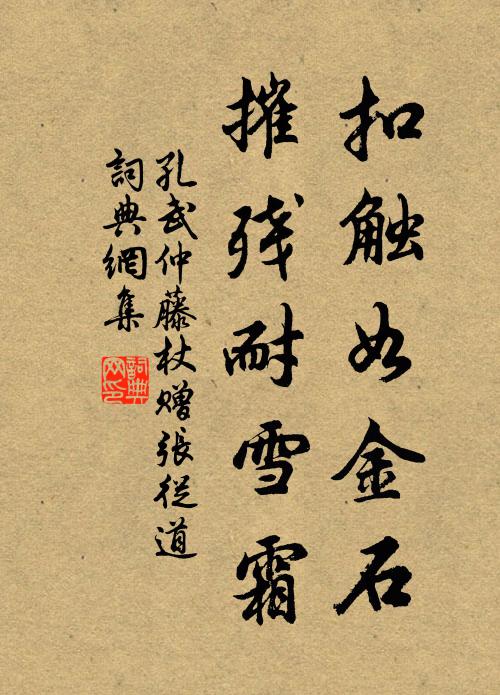 扣触如金石
摧残耐雪霜
孔武仲藤杖赠張従道
詞典網集
詞典
网印